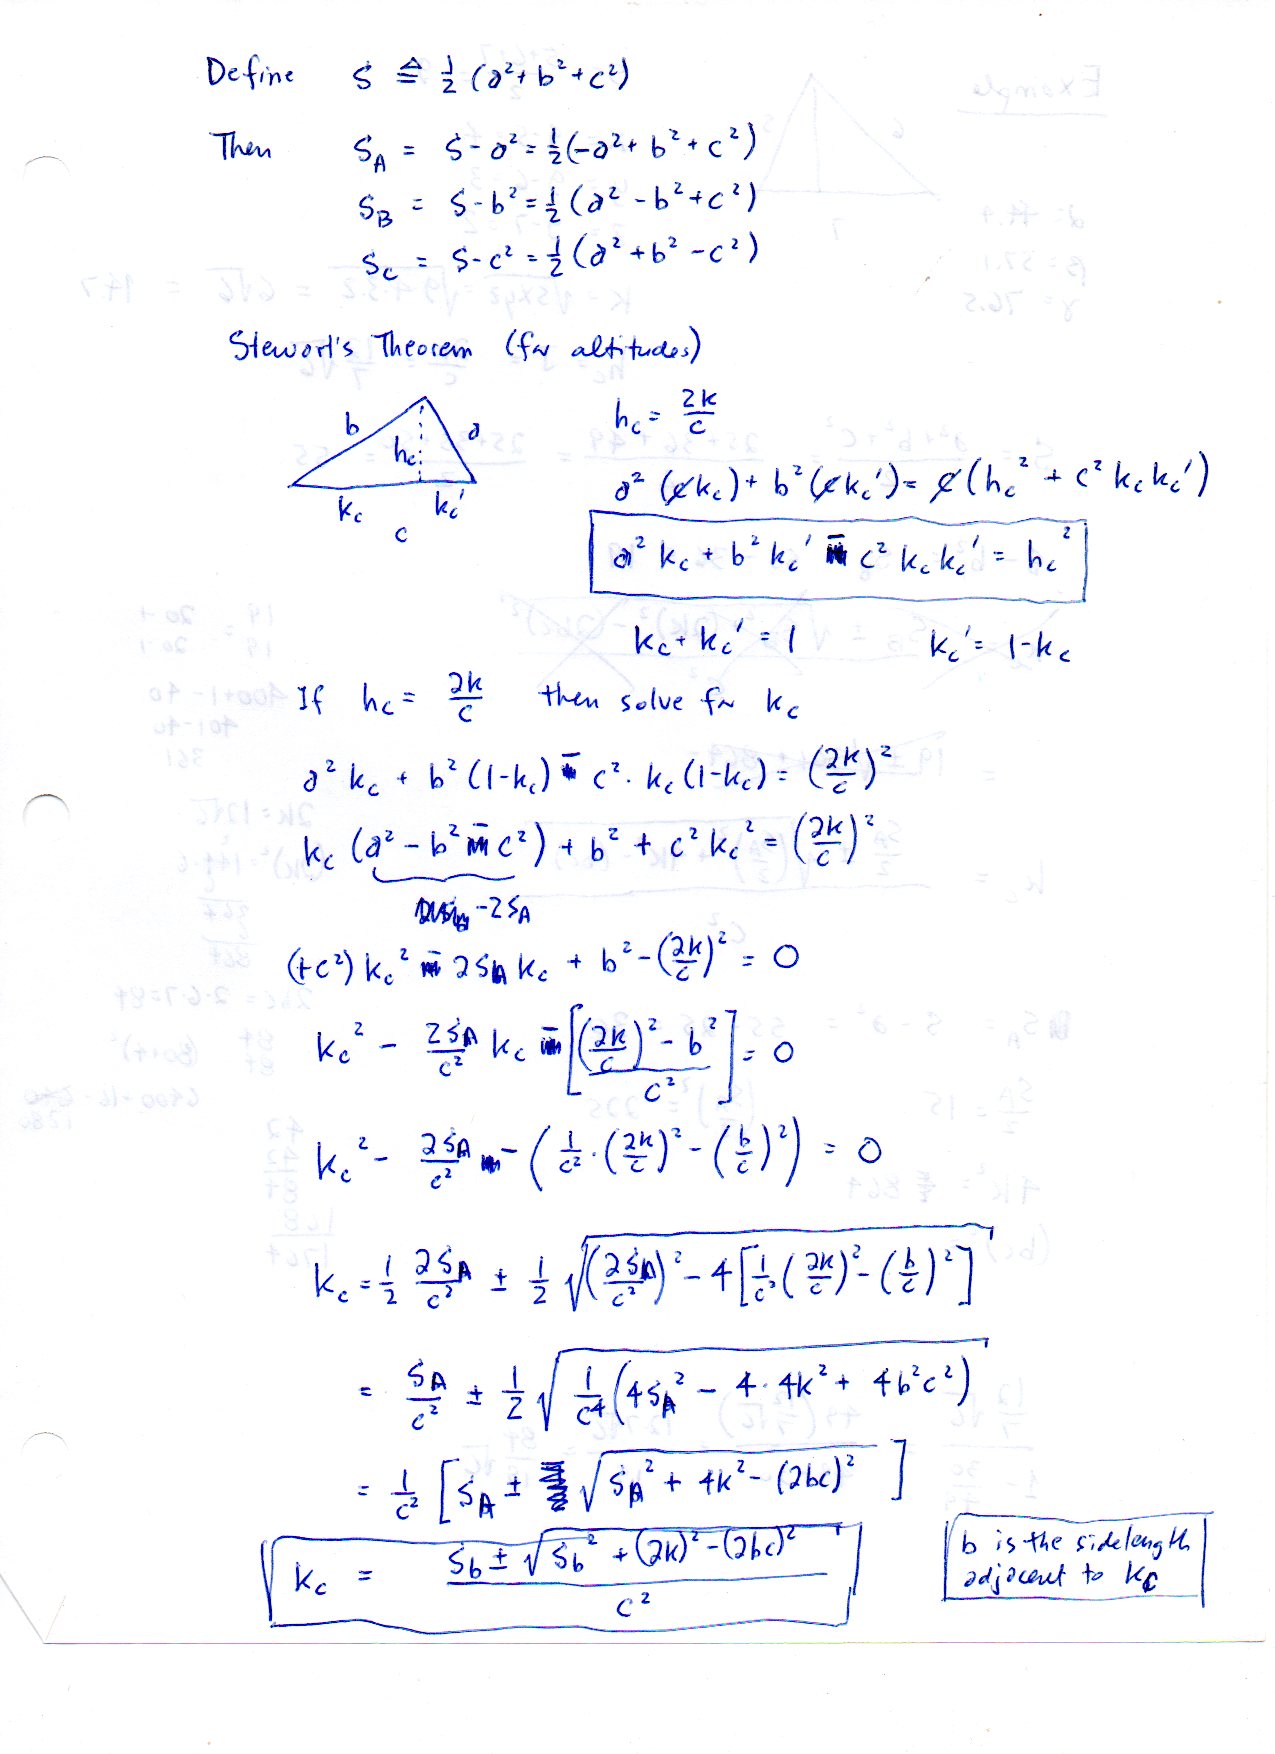 Define S ≜ 1/2 (a² + b² + c²)
Then S_A = S - a² = 1/2 (-a² + b² + c²)
S_B = S - b² = 1/2 (a² - b² + c²)
S_C = S - c² = 1/2 (a² + b² - c²)
Stewart's Theorem (for altitudes)
b a h_c
k_c k_c'
c
h_c = 2K/c
a² (c k_c) + b² (c k_c') = c (h_c² + c² k_c k_c')
a² k_c + b² k_c' - c² k_c k_c' = h_c²
k_c + k_c' = 1 k_c' = 1 - k_c
If h_c = 2K/c then solve for k_c
a² k_c + b² (1-k_c) - c² · k_c (1-k_c) = (2K/c)²
k_c (a² - b² - c²) + b² + c² k_c² = (2K/c)²
-2S_A
(+c²) k_c² - 2S_A k_c + b² - (2K/c)² = 0
k_c² - 2S_A/c² k_c - [((2K/c)² - b²)/c²] = 0
k_c² - 2S_A/c² - (1/c² · (2K/c)² - (b/c)²) = 0
k_c = 1/2 2S_A/c² ± 1/2 √((2S_A/c²)² - 4[1/c² (2K/c)² - (b/c)²])
= S_A/c² ± 1/2 √(1/c⁴ (4S_A² - 4·4K² + 4b²c²))
= 1/c² [S_A ± √(S_A² + 4K² - (2bc)²)]
k_c = (S_b ± √(S_b² + (2K)² - (2bc)²))/c²
b is the sidelength
adjacent to k_c